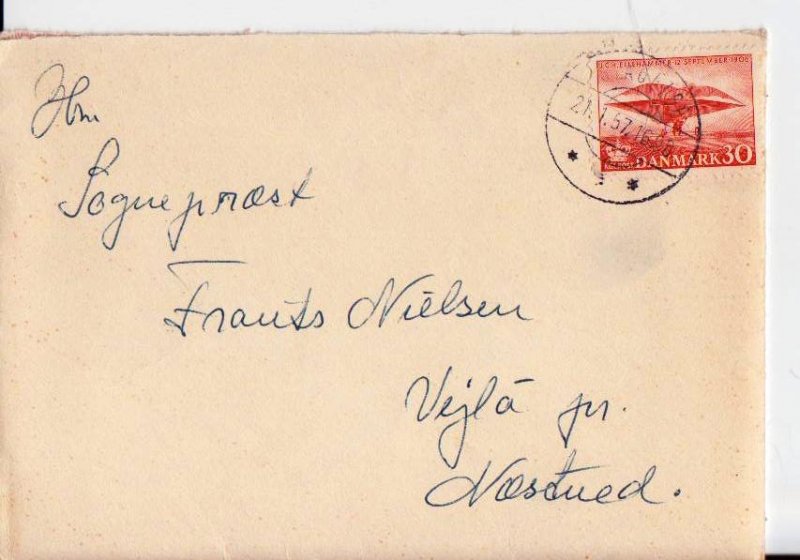 Hrn
Sognepræst
Frants Nielsen
Vejlø pr.
Næstved.
J.C.H. ELLEHAMMER · 12 SEPTEMBER · 1906
21.1.57.16
DANMARK 30